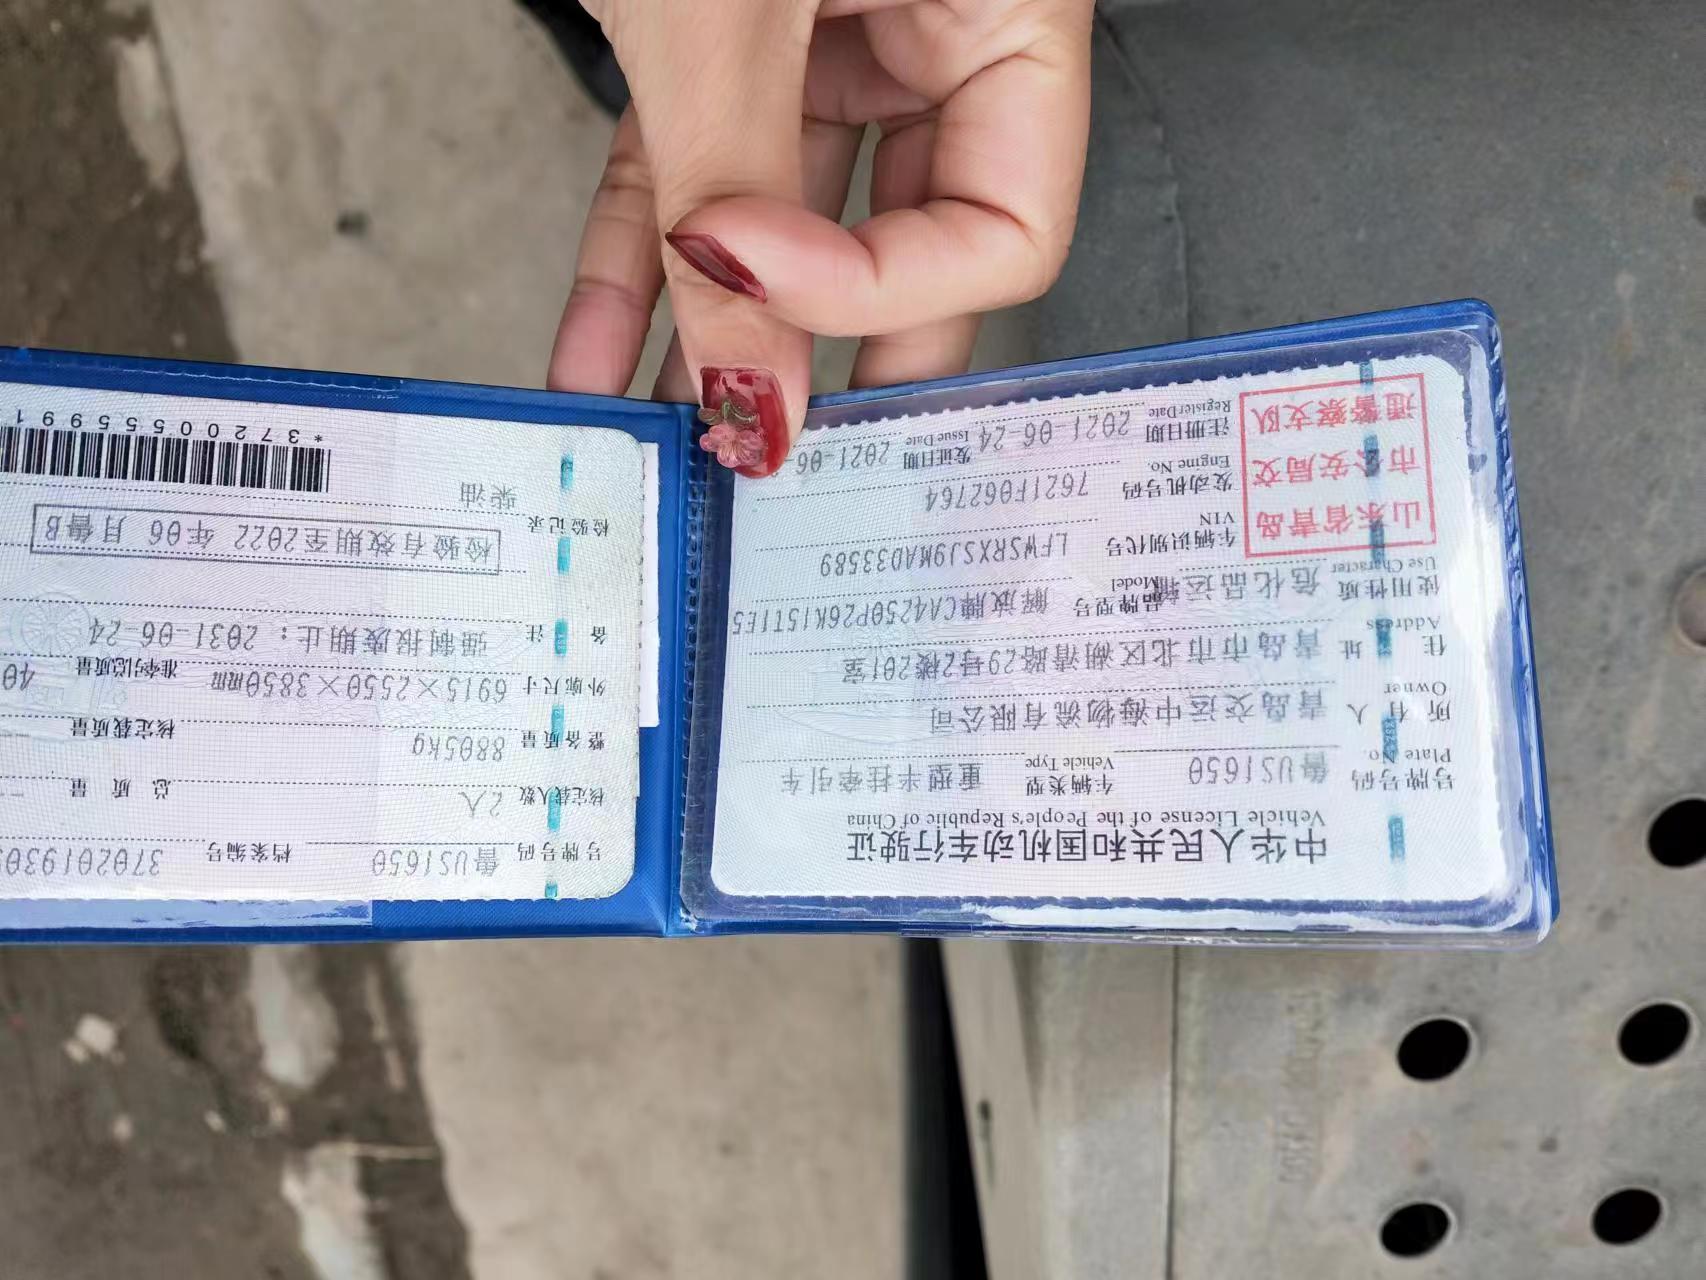 中华人民共和国机动车行驶证
Vehicle License of the People's Republic of China
号牌号码 鲁US1650 车辆类型 重型半挂牵引车
Plate No. Vehicle Type
所有人 青岛交运中海物流有限公司
Owner
住址 青岛市市北区湖清路29号2楼201室
Address
使用性质 危化品运输 品牌型号 解放牌CA4250P26K15T1E5
Use Character Model
车辆识别代号 LFWSRXSJ9MAD33589
VIN
发动机号码 7621F062764
Engine No.
注册日期 2021-06-24 发证日期 2021-06-
Register Date Issue Date
山东省青岛
市公安局交
通警察支队
号牌号码 鲁US1650 档案编号 370201930
核定载人数 2人 总质量 --
整备质量 8805kg 核定载质量
外廓尺寸 6915×2550×3850mm 准牵引总质量 40
备注 强制报废期止：2031-06-24
检验有效期至2022年06月鲁B
检验记录
柴油
*37200555991